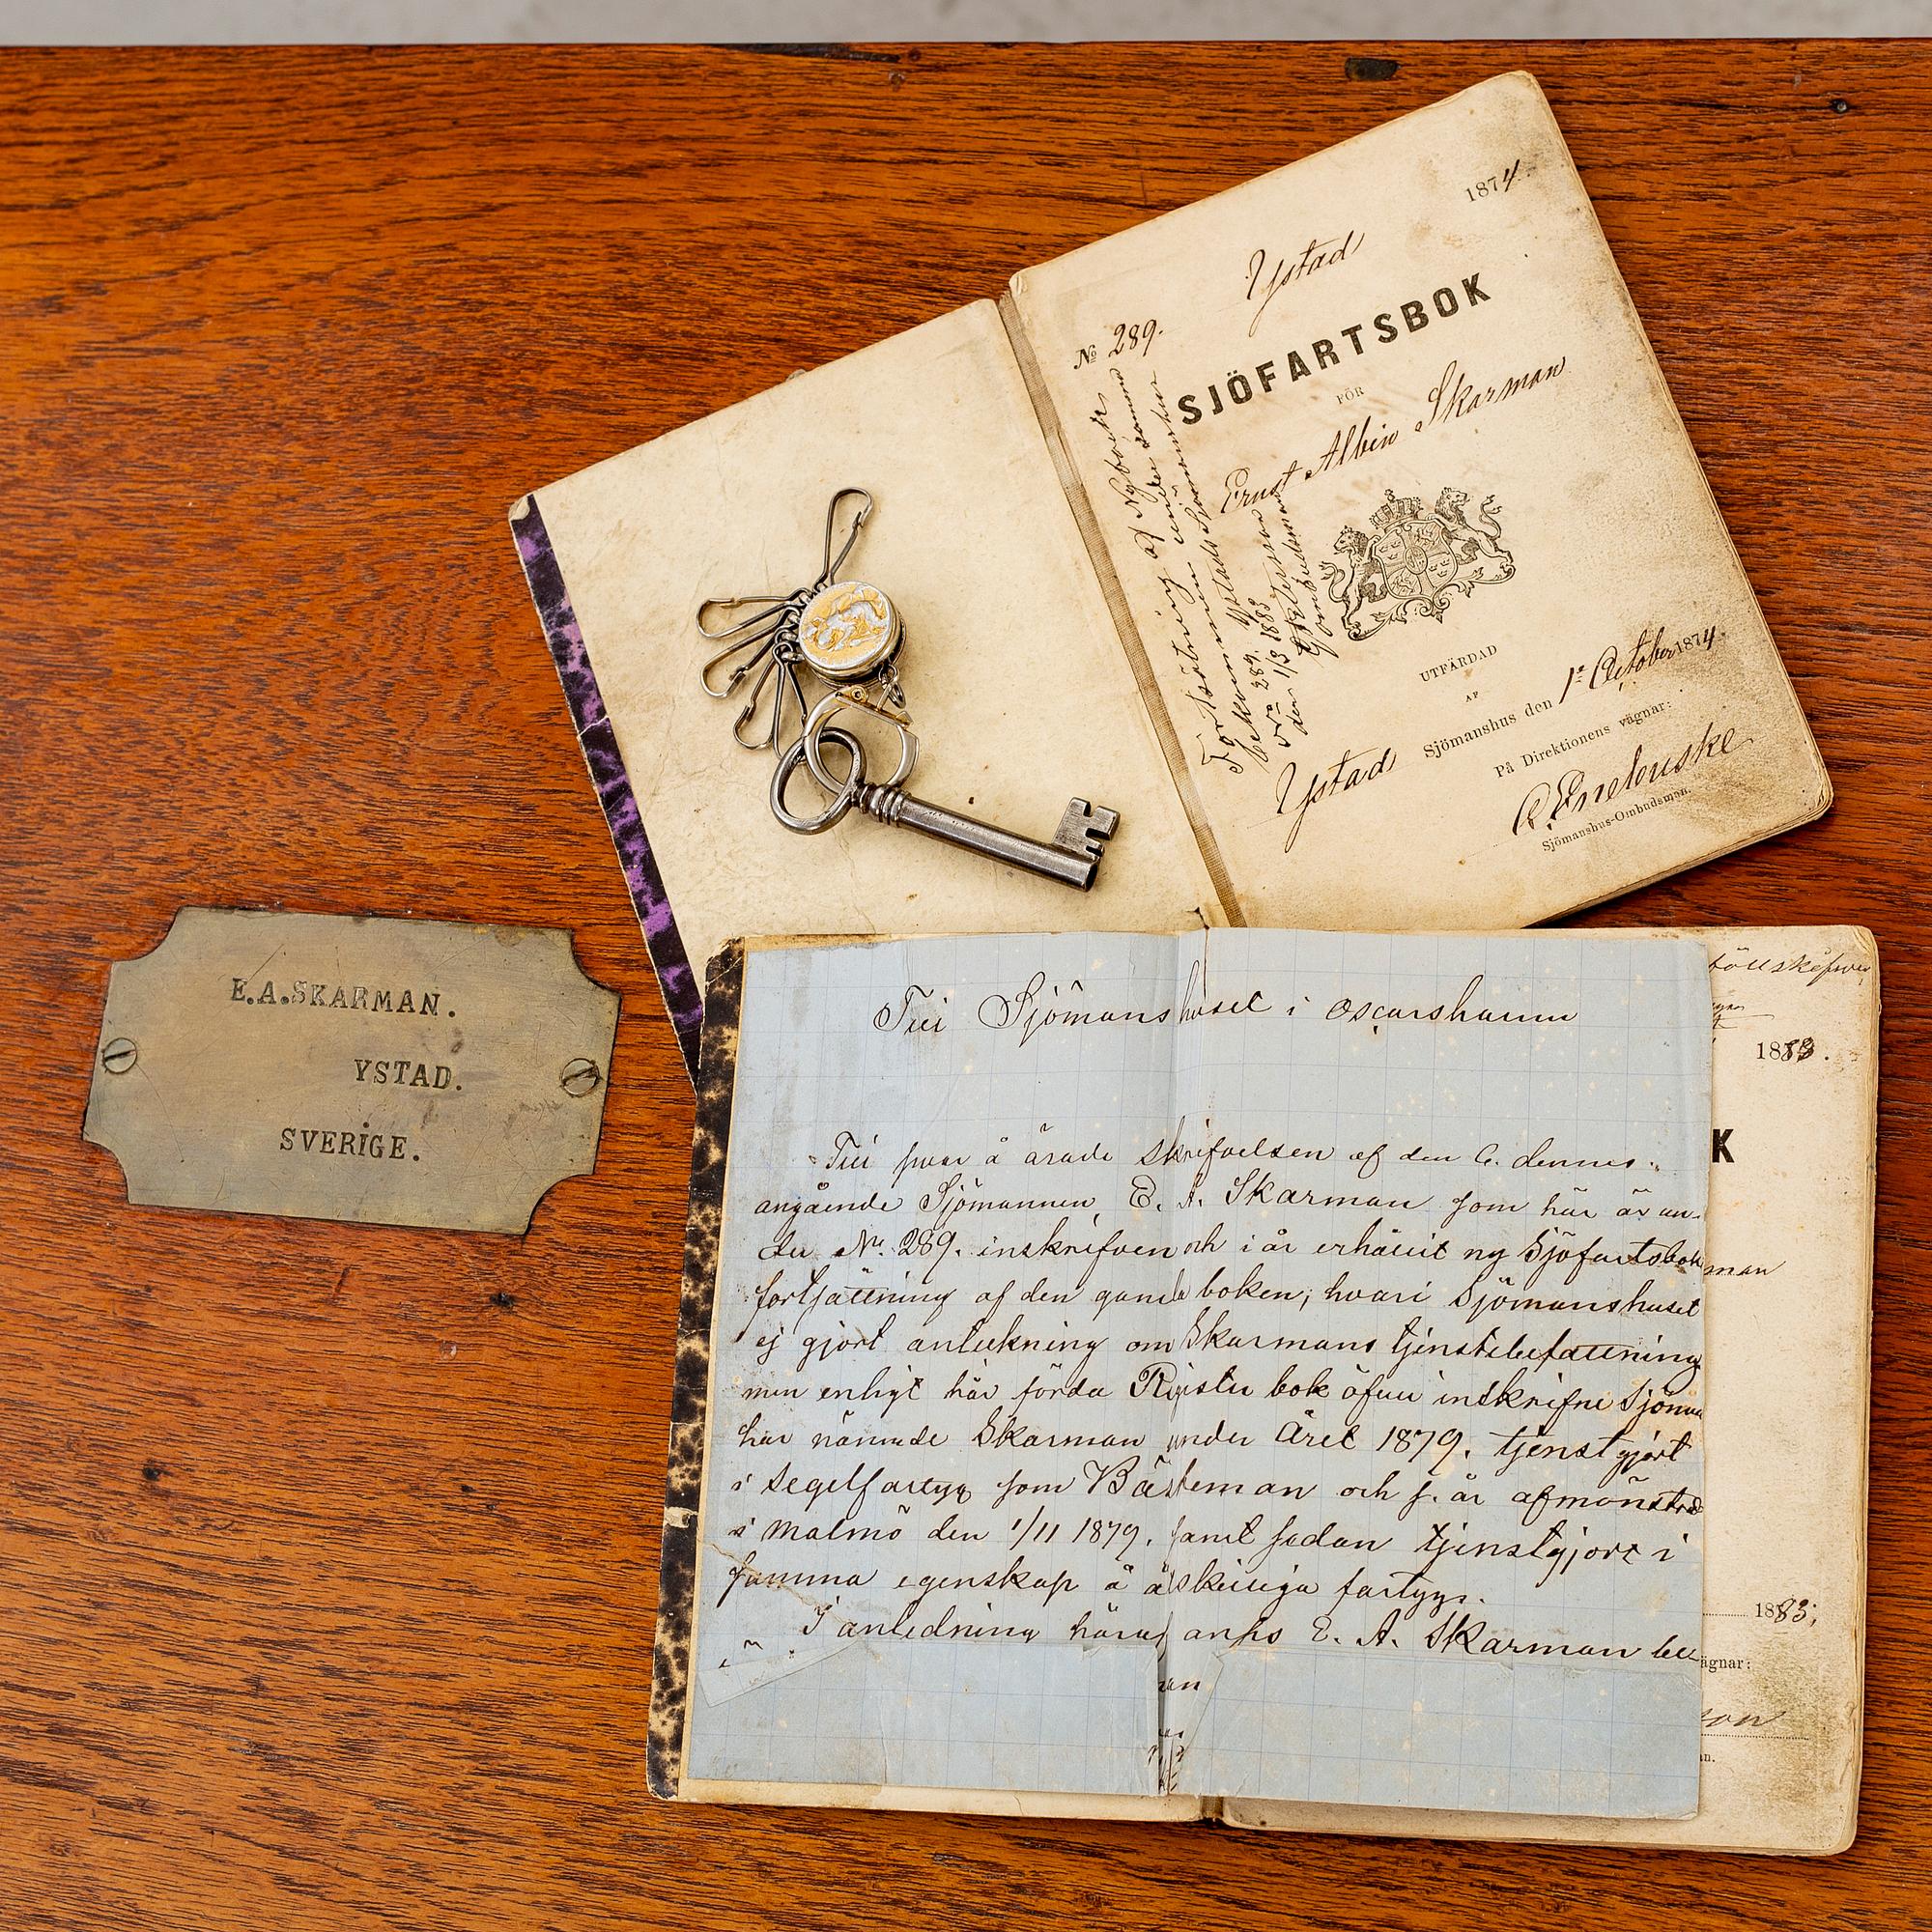 1874
Ystad
№ 289.
SJÖFARTSBOK
FÖR
Ernst Albin Skarman
UTFÄRDAD
AF
Ystad Sjömanshus den 1e October 1874.
På Direktionens vägnar:
C. Enelouske
Sjömanshus-Ombudsman.
Fortsättning af Sjöfarts
boken Ystads Sjömanshus
No 289. den 1/3 1883
Ombudsman
E.A.SKARMAN.
YSTAD.
SVERIGE.
Till Sjömanshuset i Oscarshamn
Till svar å ärade skrifvelsen af den 6. dennes.
angående Sjömannen E. A. Skarman som här är un-
der Nr. 289. inskrifven och i år erhållit ny Sjöfartsbok
fortsättning af den gamla boken, hvari Sjömanshuset
ej gjort anteckning om Skarmans tjenstebefattning
men enligt här förda Register bok öfver inskrifne Sjömän
har nämnde Skarman under Året 1879. tjenstgjort
i segelfartyg som Bästeman och s. år afmönstrad
i Malmö den 1/11 1879. samt sedan tjenstgjort i
samma egenskap å åtskilliga fartyg.
I anledning häraf anhs E. A. Skarman
1883.
K
man
1883;
ägnar:
son
n.